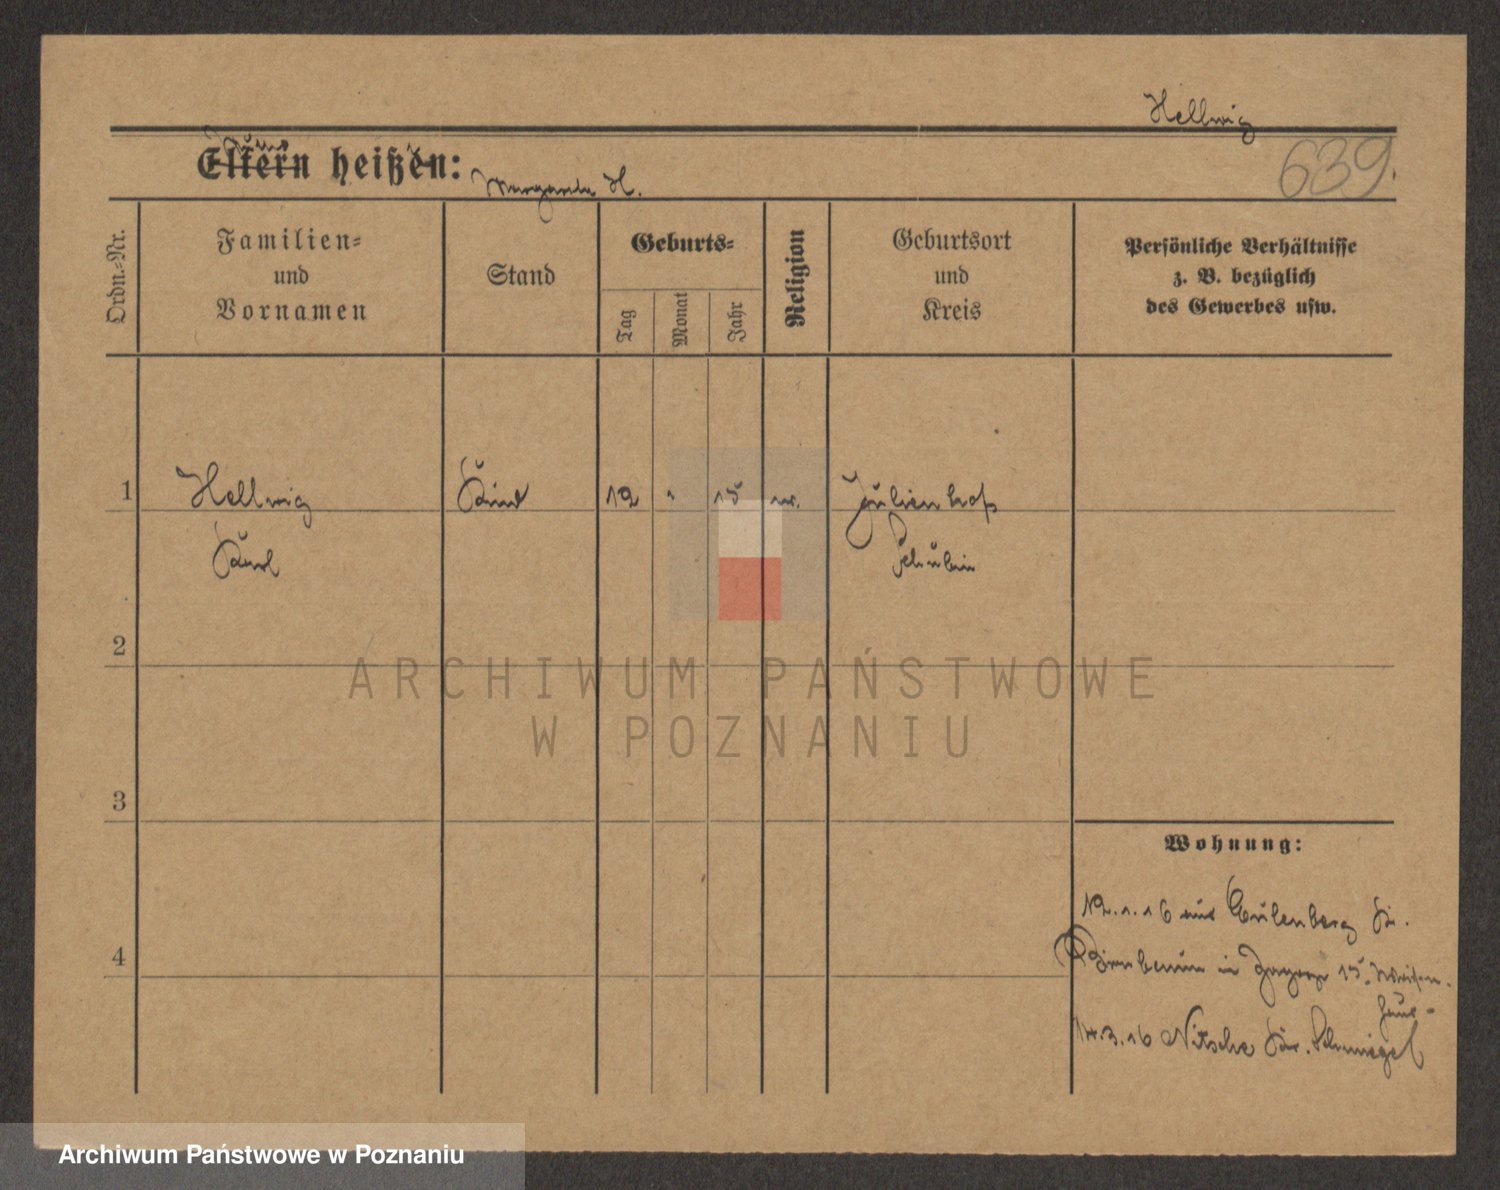 Hellwig
639.
Eltern heißen:
Margarete H.
Ordn.-Nr.
Familien-
und
Vornamen
Stand
Geburts-
Tag
Monat
Jahr
Religion
Geburtsort
und
Kreis
Persönliche Verhältnisse
z. B. bezüglich
des Gewerbes usw.
1
Hellwig
Kind
12
15
Julienhof
Karl
Schubin
2
ARCHIWUM PAŃSTWOWE
W POZNANIU
3
Wohnung:
12.1.16 aus Eulenberg Kr.
4
Birnbaum in 15. Waisen-
haus-
14.3.16 Nitsche Kr. Schmiegel
Archiwum Państwowe w Poznaniu